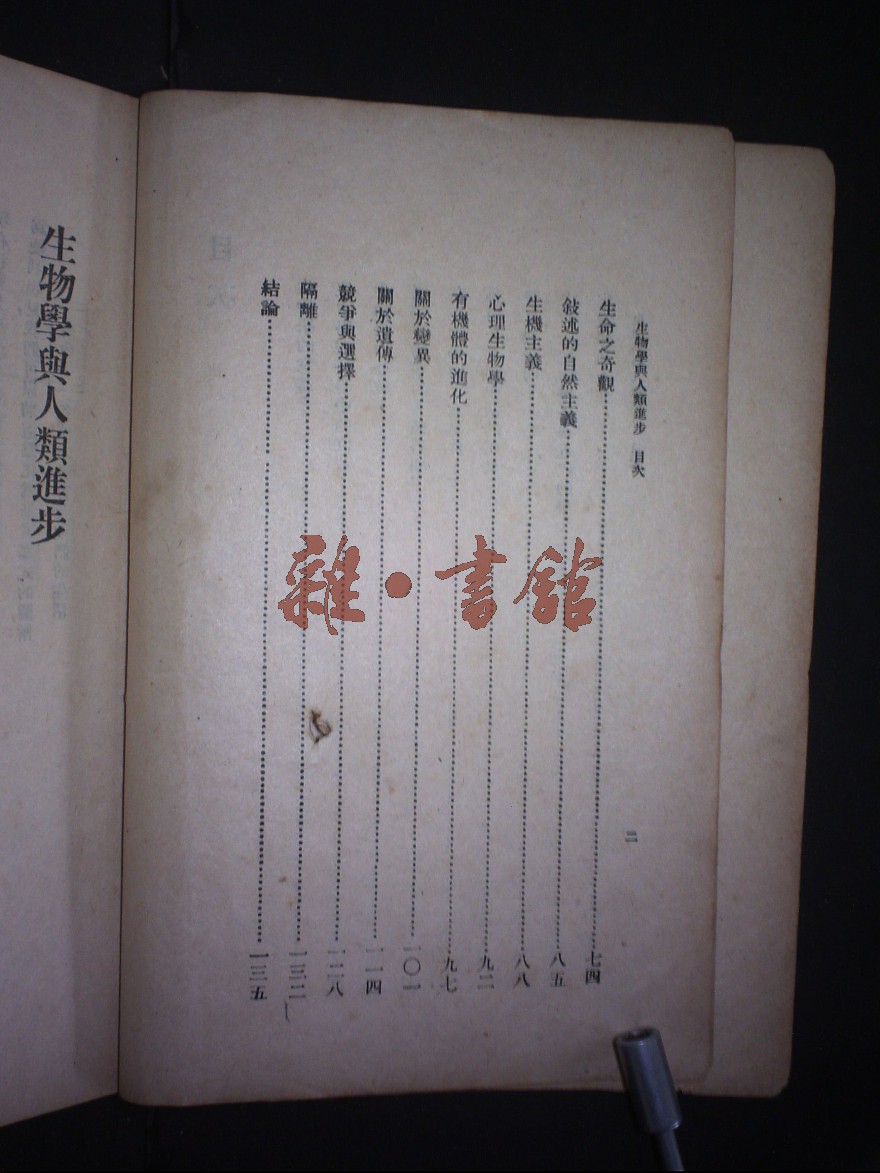 生物學與人類進步 目次
二
生命之奇觀……七四
敍述的自然主義……八五
生機主義……八八
心理生物學……九二
有機體的進化……九七
關於變異……一〇一
關於遺傳……一一四
競爭與選擇……一二八
隔離……一三二
結論……一三五
生物學與人類進步
雜·書館